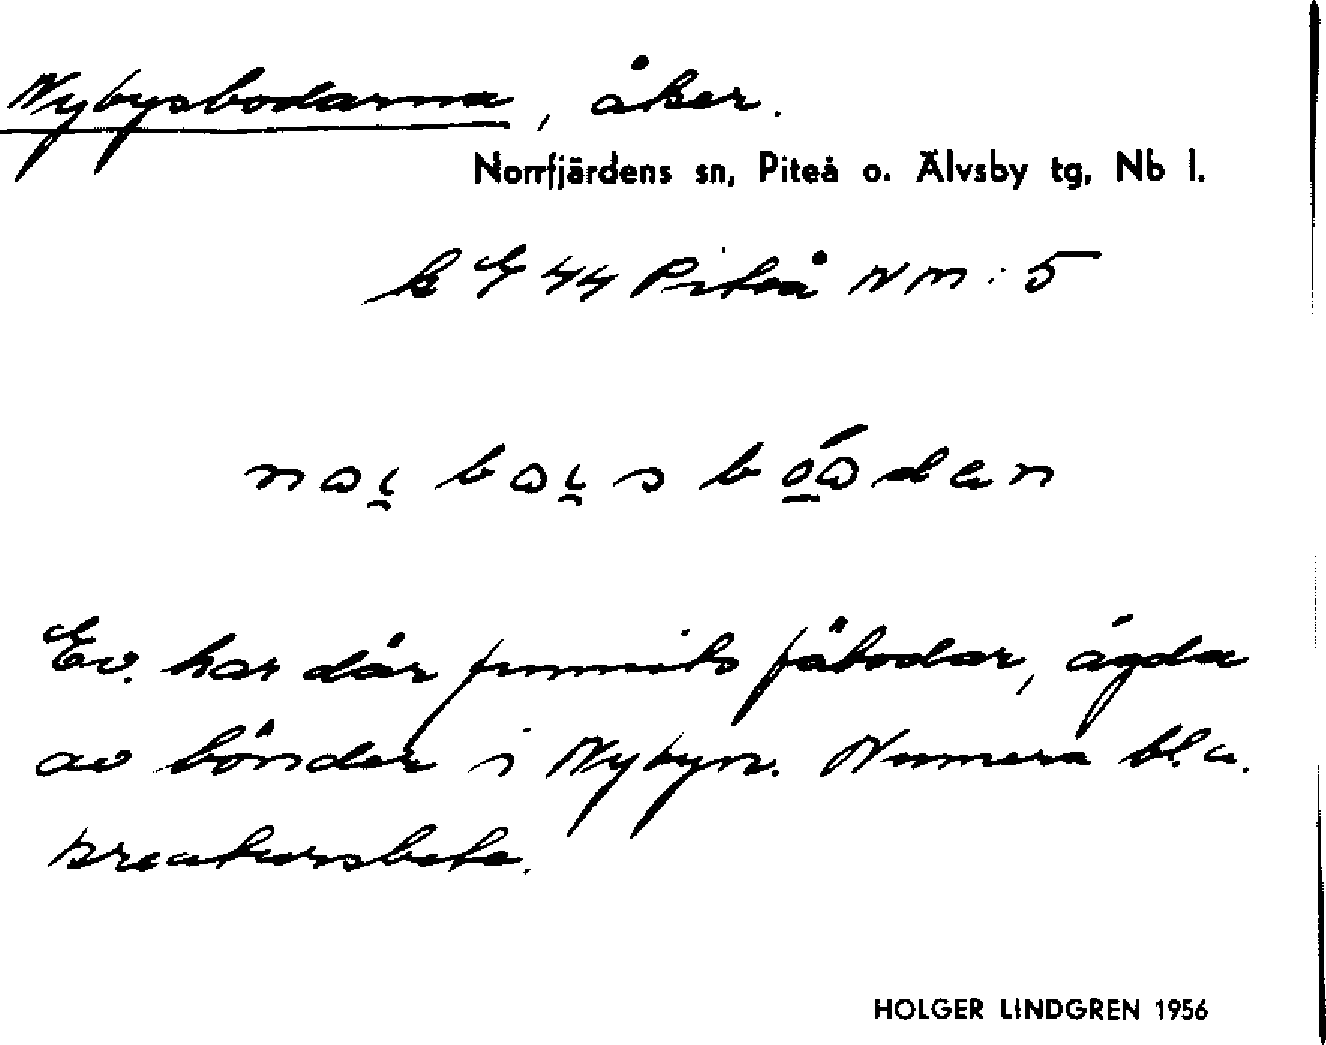 Nybysbodarna, åker.
Norrfjärdens sn, Piteå o. Älvsby tg, Nb l.
k E 44 Piteå NM: 5
Ev. har där funnits fäbodar, ägda
av bönder i Nybyn. Numera bl.a.
kreatursbete.
HOLGER LINDGREN 1956